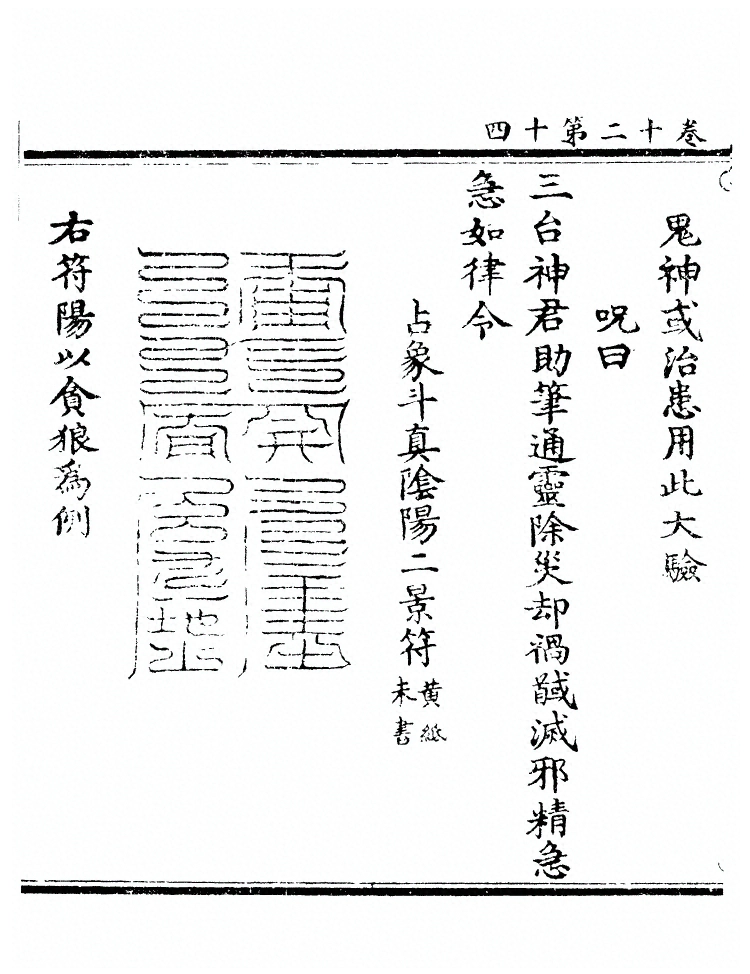 卷十二第十四
鬼神或治患用此大驗
呪曰
三台神君助筆通靈除災却禍馘滅邪精急
急如律令
占象斗真陰陽二景符黃紙
朱書
右符陽以貪狼為例